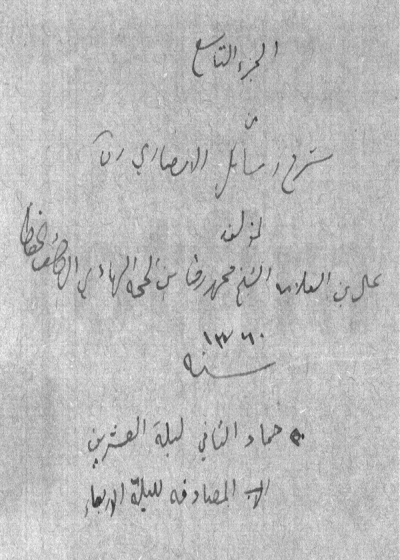 الجزء التاسع
من
شرح رسائل الانصاري ره
لمؤلفه
علي بن العلامه الشيخ محمد رضا بن الحجة الهادي ال كاشف الغطا
١٣٦٠
سنه
جماد الثاني ليلة العشرين
المصادفه لليلة الاربعاء